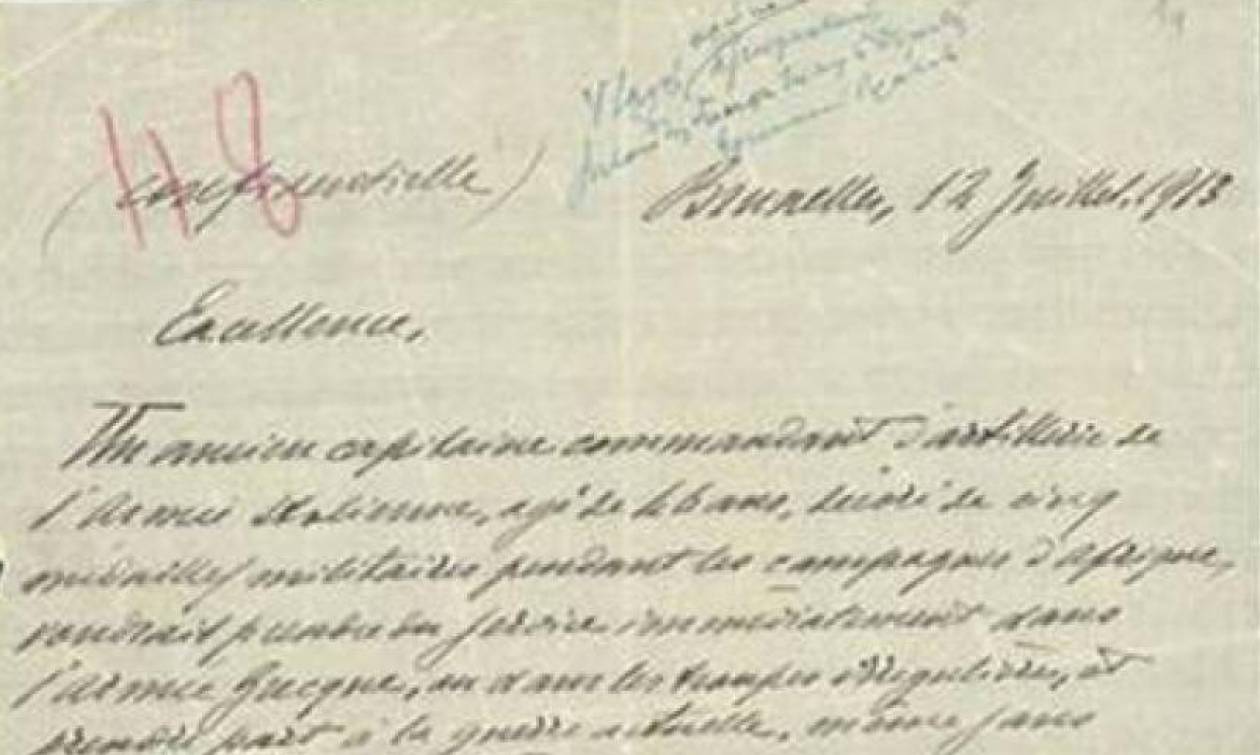 118
(Confidentielle)
Bruxelles, 12 Juillet. 1913
Excellence,
Un ancien capitaine commandant d'artillerie de
l'Armée Italienne, agé de 46 ans, décoré de cinq
médailles militaires pendant les campagnes d'Afrique,
voudrait prendre du service immédiatement dans
l'armée Grecque, ou dans les troupes irrégulières, et
prendre part à la guerre actuelle, même sans